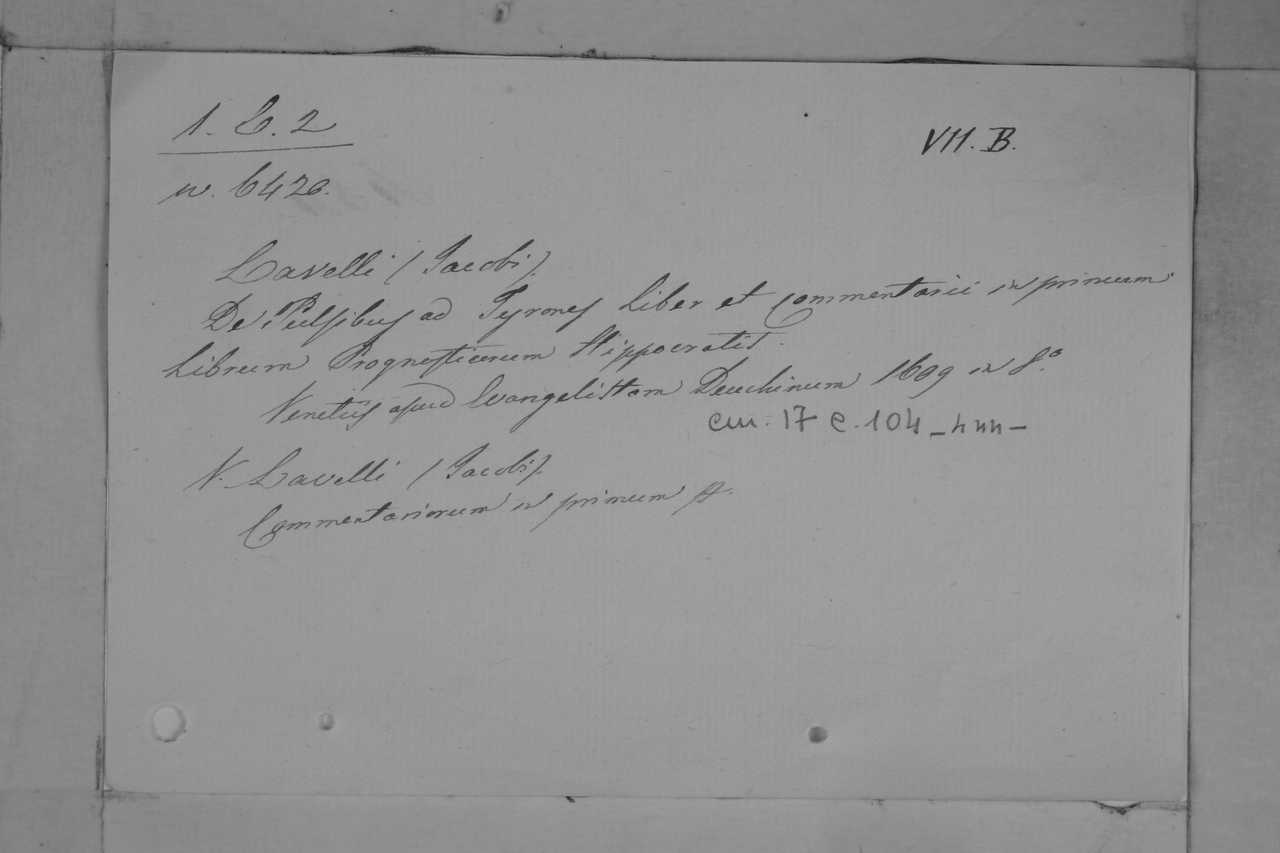 1. C. 2
VII. B.
n. 6420.
Lavelli (Jacobi).
De Pulsibus ad Tyrones Liber et Commentarii in primum
Librum Prognosticorum Hippocratis.
Venetiis apud Evangelistam Deuchinum 1609 in 8.º
cm. 17 c. 104
N. Lavelli (Jacobi).
Commentariorum in primum